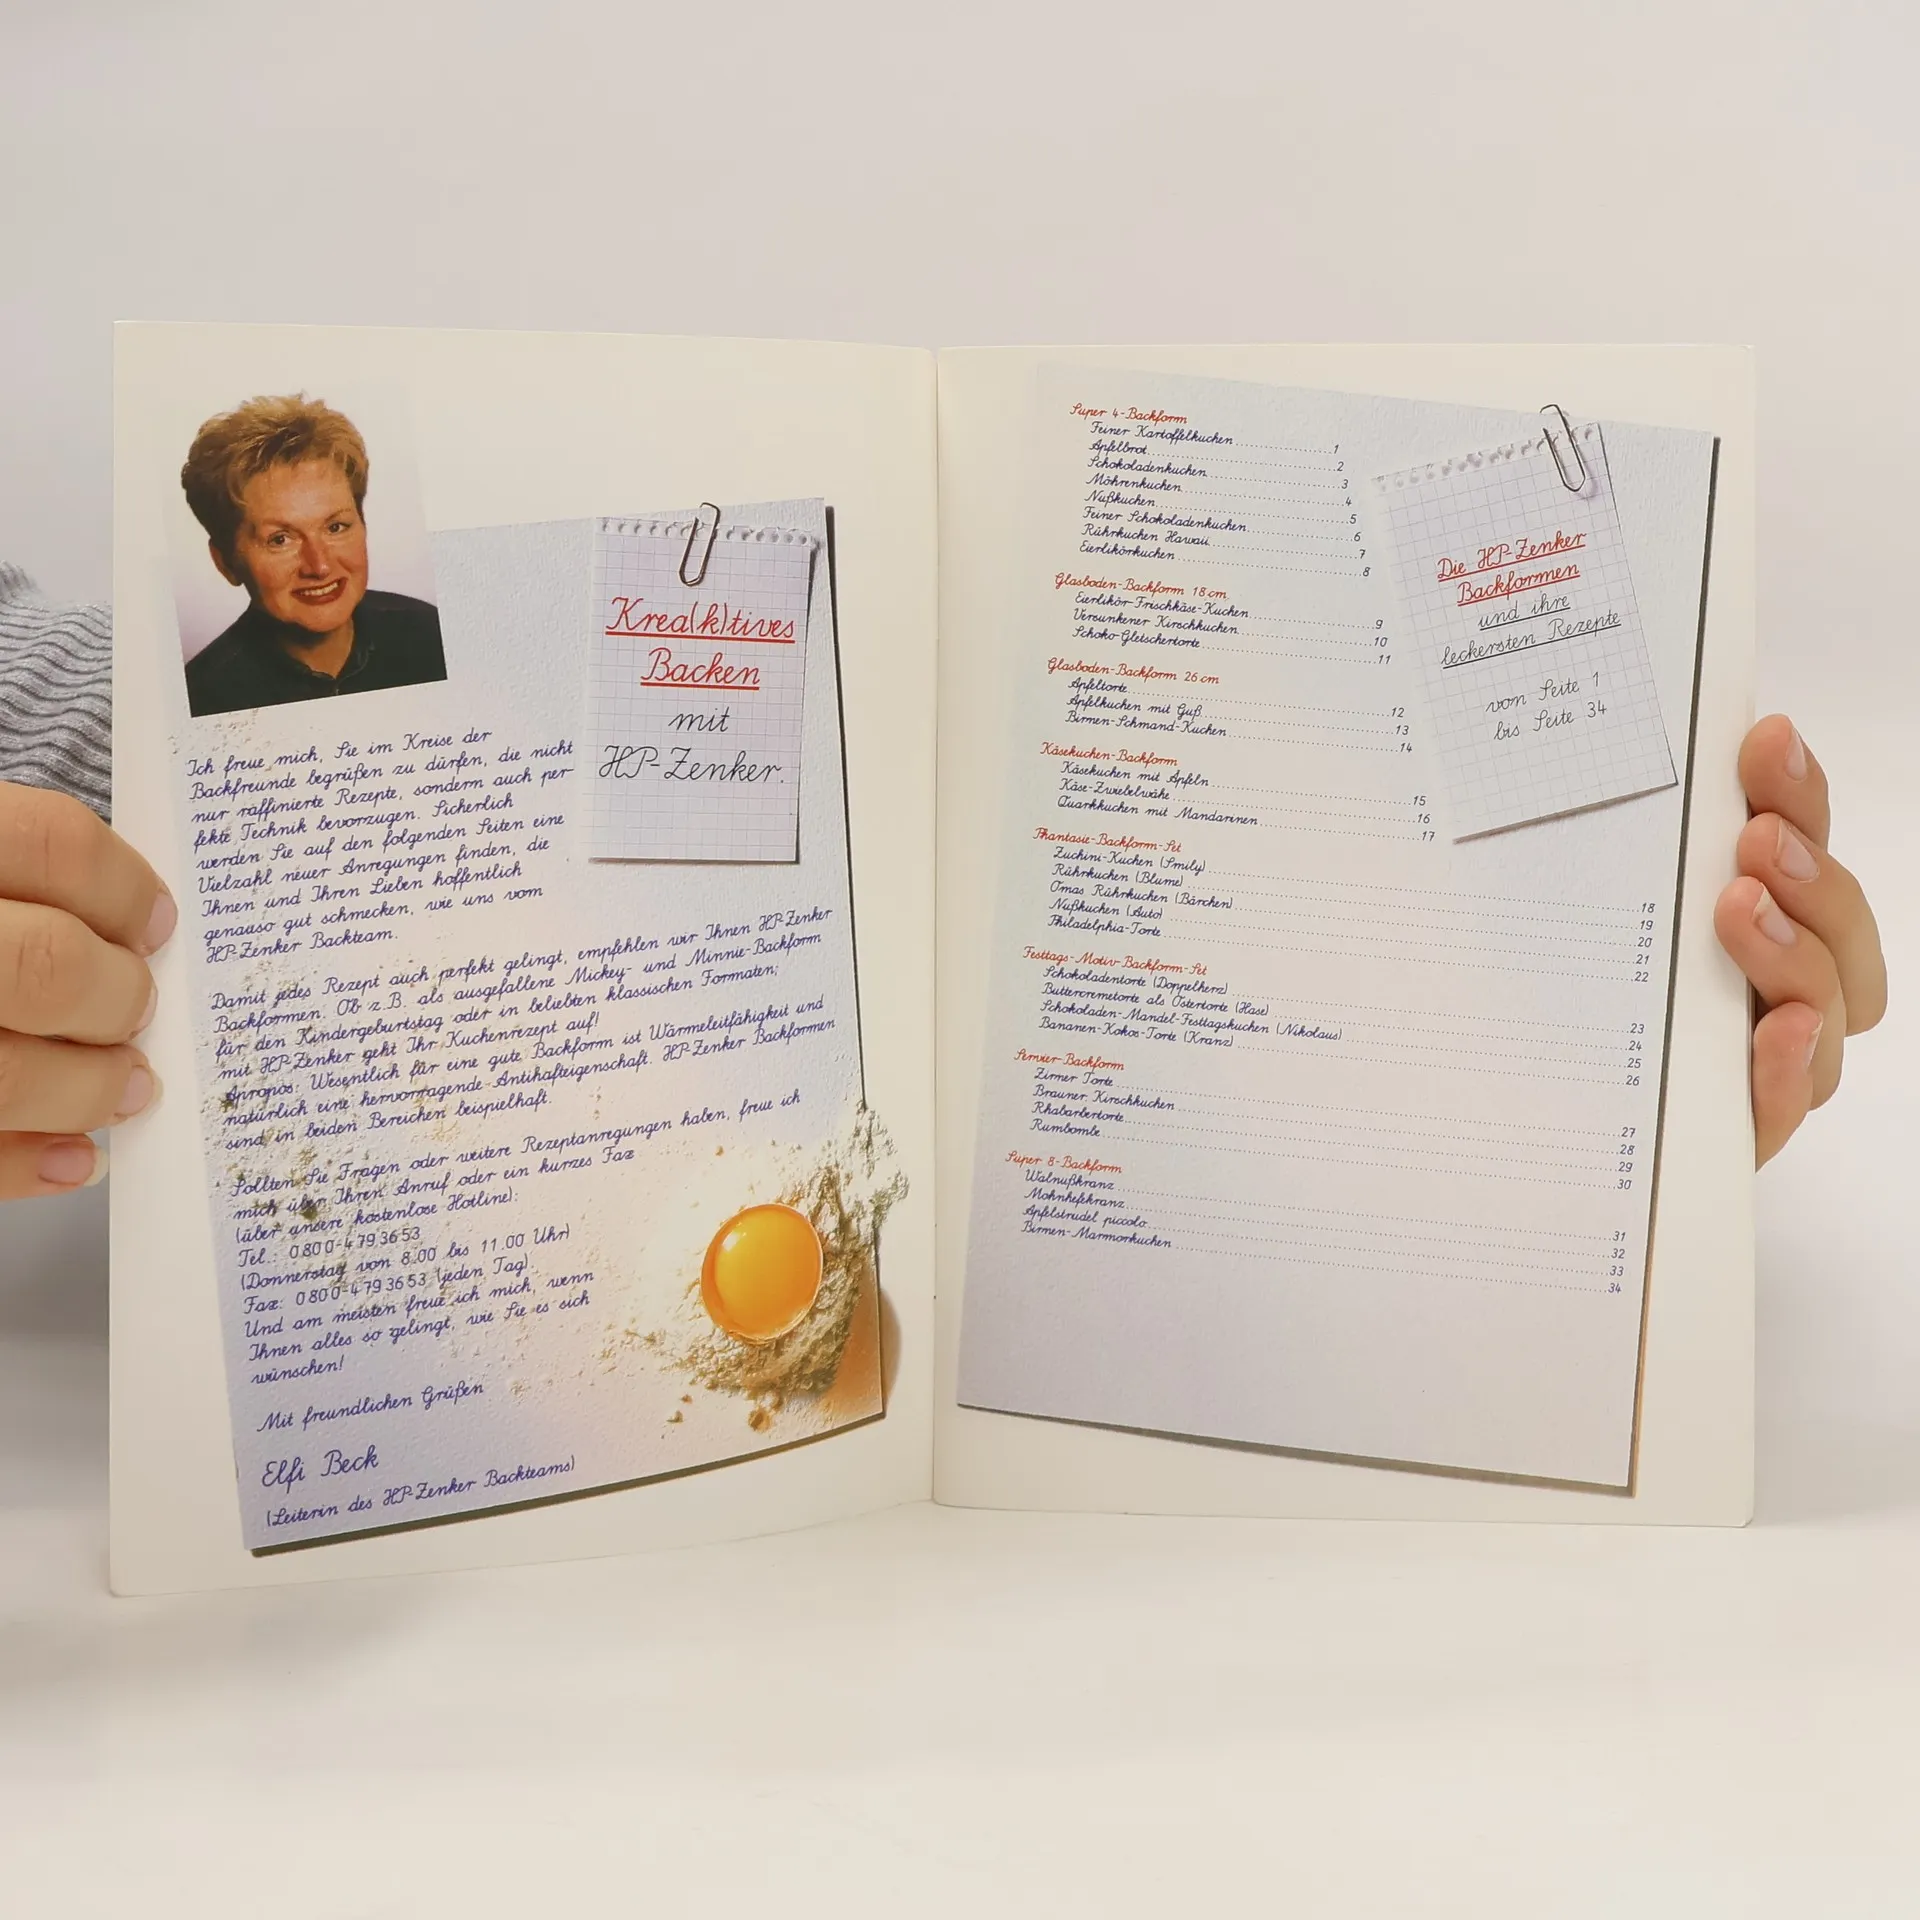 Krea(k)tives
Backen
mit
HP-Zenker.
Ich freue mich, Sie im Kreise der
Backfreunde begrüßen zu dürfen, die nicht
nur raffinierte Rezepte, sondern auch per-
fekte Technik bevorzugen. Sicherlich
werden Sie auf den folgenden Seiten eine
Vielzahl neuer Anregungen finden, die
Ihnen und Ihren Lieben hoffentlich
genauso gut schmecken, wie uns vom
HP-Zenker Backteam.
Damit jedes Rezept auch perfekt gelingt, empfehlen wir Ihnen HP-Zenker
Backformen. Ob z.B. als ausgefallene Mickey- und Minnie-Backform
für den Kindergeburtstag oder in beliebten klassischen Formaten;
mit HP-Zenker geht Ihr Kuchenrezept auf!
Apropos: Wesentlich für eine gute Backform ist Wärmeleitfähigkeit und
natürlich eine hervorragende Antihafteigenschaft. HP-Zenker Backformen
sind in beiden Bereichen beispielhaft.
Sollten Sie Fragen oder weitere Rezeptanregungen haben, freue ich
mich über Ihren Anruf oder ein kurzes Fax
(über unsere kostenlose Hotline):
Tel.: 0800-4793653
(Donnerstag von 8.00 bis 11.00 Uhr)
Fax: 0800-4793653 (jeden Tag).
Und am meisten freue ich mich, wenn
Ihnen alles so gelingt, wie Sie es sich
wünschen!
Mit freundlichen Grüßen
Elfi Beck
(Leiterin des HP-Zenker Backteams)
Die HP-Zenker
Backformen
und ihre
leckersten Rezepte
von Seite 1
bis Seite 34
Super 4-Backform
Feiner Kartoffelkuchen 1
Apfelbrot 2
Schokoladenkuchen 3
Möhrenkuchen 4
Nußkuchen 5
Feiner Schokoladenkuchen 6
Rührkuchen Hawaii 7
Eierlikörkuchen 8
Glasboden-Backform 18 cm
Eierlikör-Frischkäse-Kuchen 9
Versunkener Kirschkuchen 10
Schoko-Gletschertorte 11
Glasboden-Backform 26 cm
Apfeltorte 12
Apfelkuchen mit Guß 13
Birnen-Schmand-Kuchen 14
Käsekuchen-Backform
Käsekuchen mit Äpfeln 15
Käse-Zwiebelwähe 16
Quarkkuchen mit Mandarinen 17
Phantasie-Backform-Set
Zuchini-Kuchen (Smily) 18
Rührkuchen (Blume) 19
Omas Rührkuchen (Bärchen) 20
Nußkuchen (Auto) 21
Philadelphia-Torte 22
Festtags-Motiv-Backform-Set
Schokoladentorte (Doppelherz) 23
Buttercremetorte als Ostertorte (Hase) 24
Schokoladen-Mandel-Festtagskuchen (Nikolaus) 25
Bananen-Kokos-Torte (Kranz) 26
Servier-Backform
Zirmer Torte 27
Brauner Kirschkuchen 28
Rhabarbertorte 29
Rumbombe 30
Super 8-Backform
Walnußkranz 31
Mohnhefekranz 32
Apfelstrudel piccolo 33
Birnen-Marmorkuchen 34